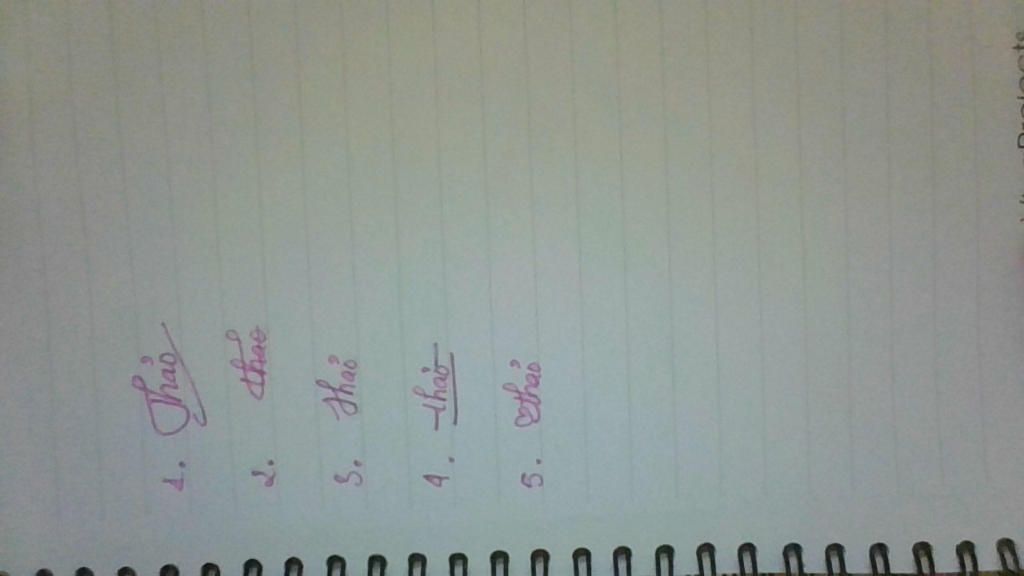 1. Thảo
2. thảo
3. thảo
4. thảo
5. thảo